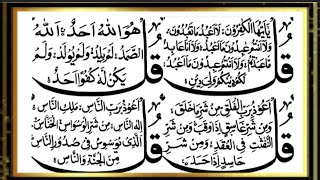 قُلْ
يٰٓاَيُّهَا الْكٰفِرُوْنَ لَآ اَعْبُدُ مَا تَعْبُدُوْنَ
وَلَآ اَنْتُمْ عٰبِدُوْنَ مَآ اَعْبُدُ وَلَآ اَنَا عَابِدٌ
مَّا عَبَدْتُّمْ وَلَآ اَنْتُمْ عٰبِدُوْنَ مَآ اَعْبُدُ
لَكُمْ دِيْنُكُمْ وَلِيَ دِيْنِ
قُلْ
هُوَ اللّٰهُ اَحَدٌ اَللّٰهُ
الصَّمَدُ لَمْ يَلِدْ وَلَمْ يُوْلَدْ وَلَمْ
يَكُنْ لَّهٗ كُفُوًا اَحَدٌ
قُلْ
اَعُوْذُ بِرَبِّ الْفَلَقِ مِنْ شَرِّ مَا خَلَقَ
وَمِنْ شَرِّ غَاسِقٍ اِذَا وَقَبَ وَمِنْ شَرِّ
النَّفّٰثٰتِ فِي الْعُقَدِ وَمِنْ شَرِّ
حَاسِدٍ اِذَا حَسَدَ
قُلْ
اَعُوْذُ بِرَبِّ النَّاسِ مَلِكِ النَّاسِ
اِلٰهِ النَّاسِ مِنْ شَرِّ الْوَسْوَاسِ الْخَنَّاسِ
الَّذِيْ يُوَسْوِسُ فِيْ صُدُوْرِ النَّاسِ
مِنَ الْجِنَّةِ وَالنَّاسِ